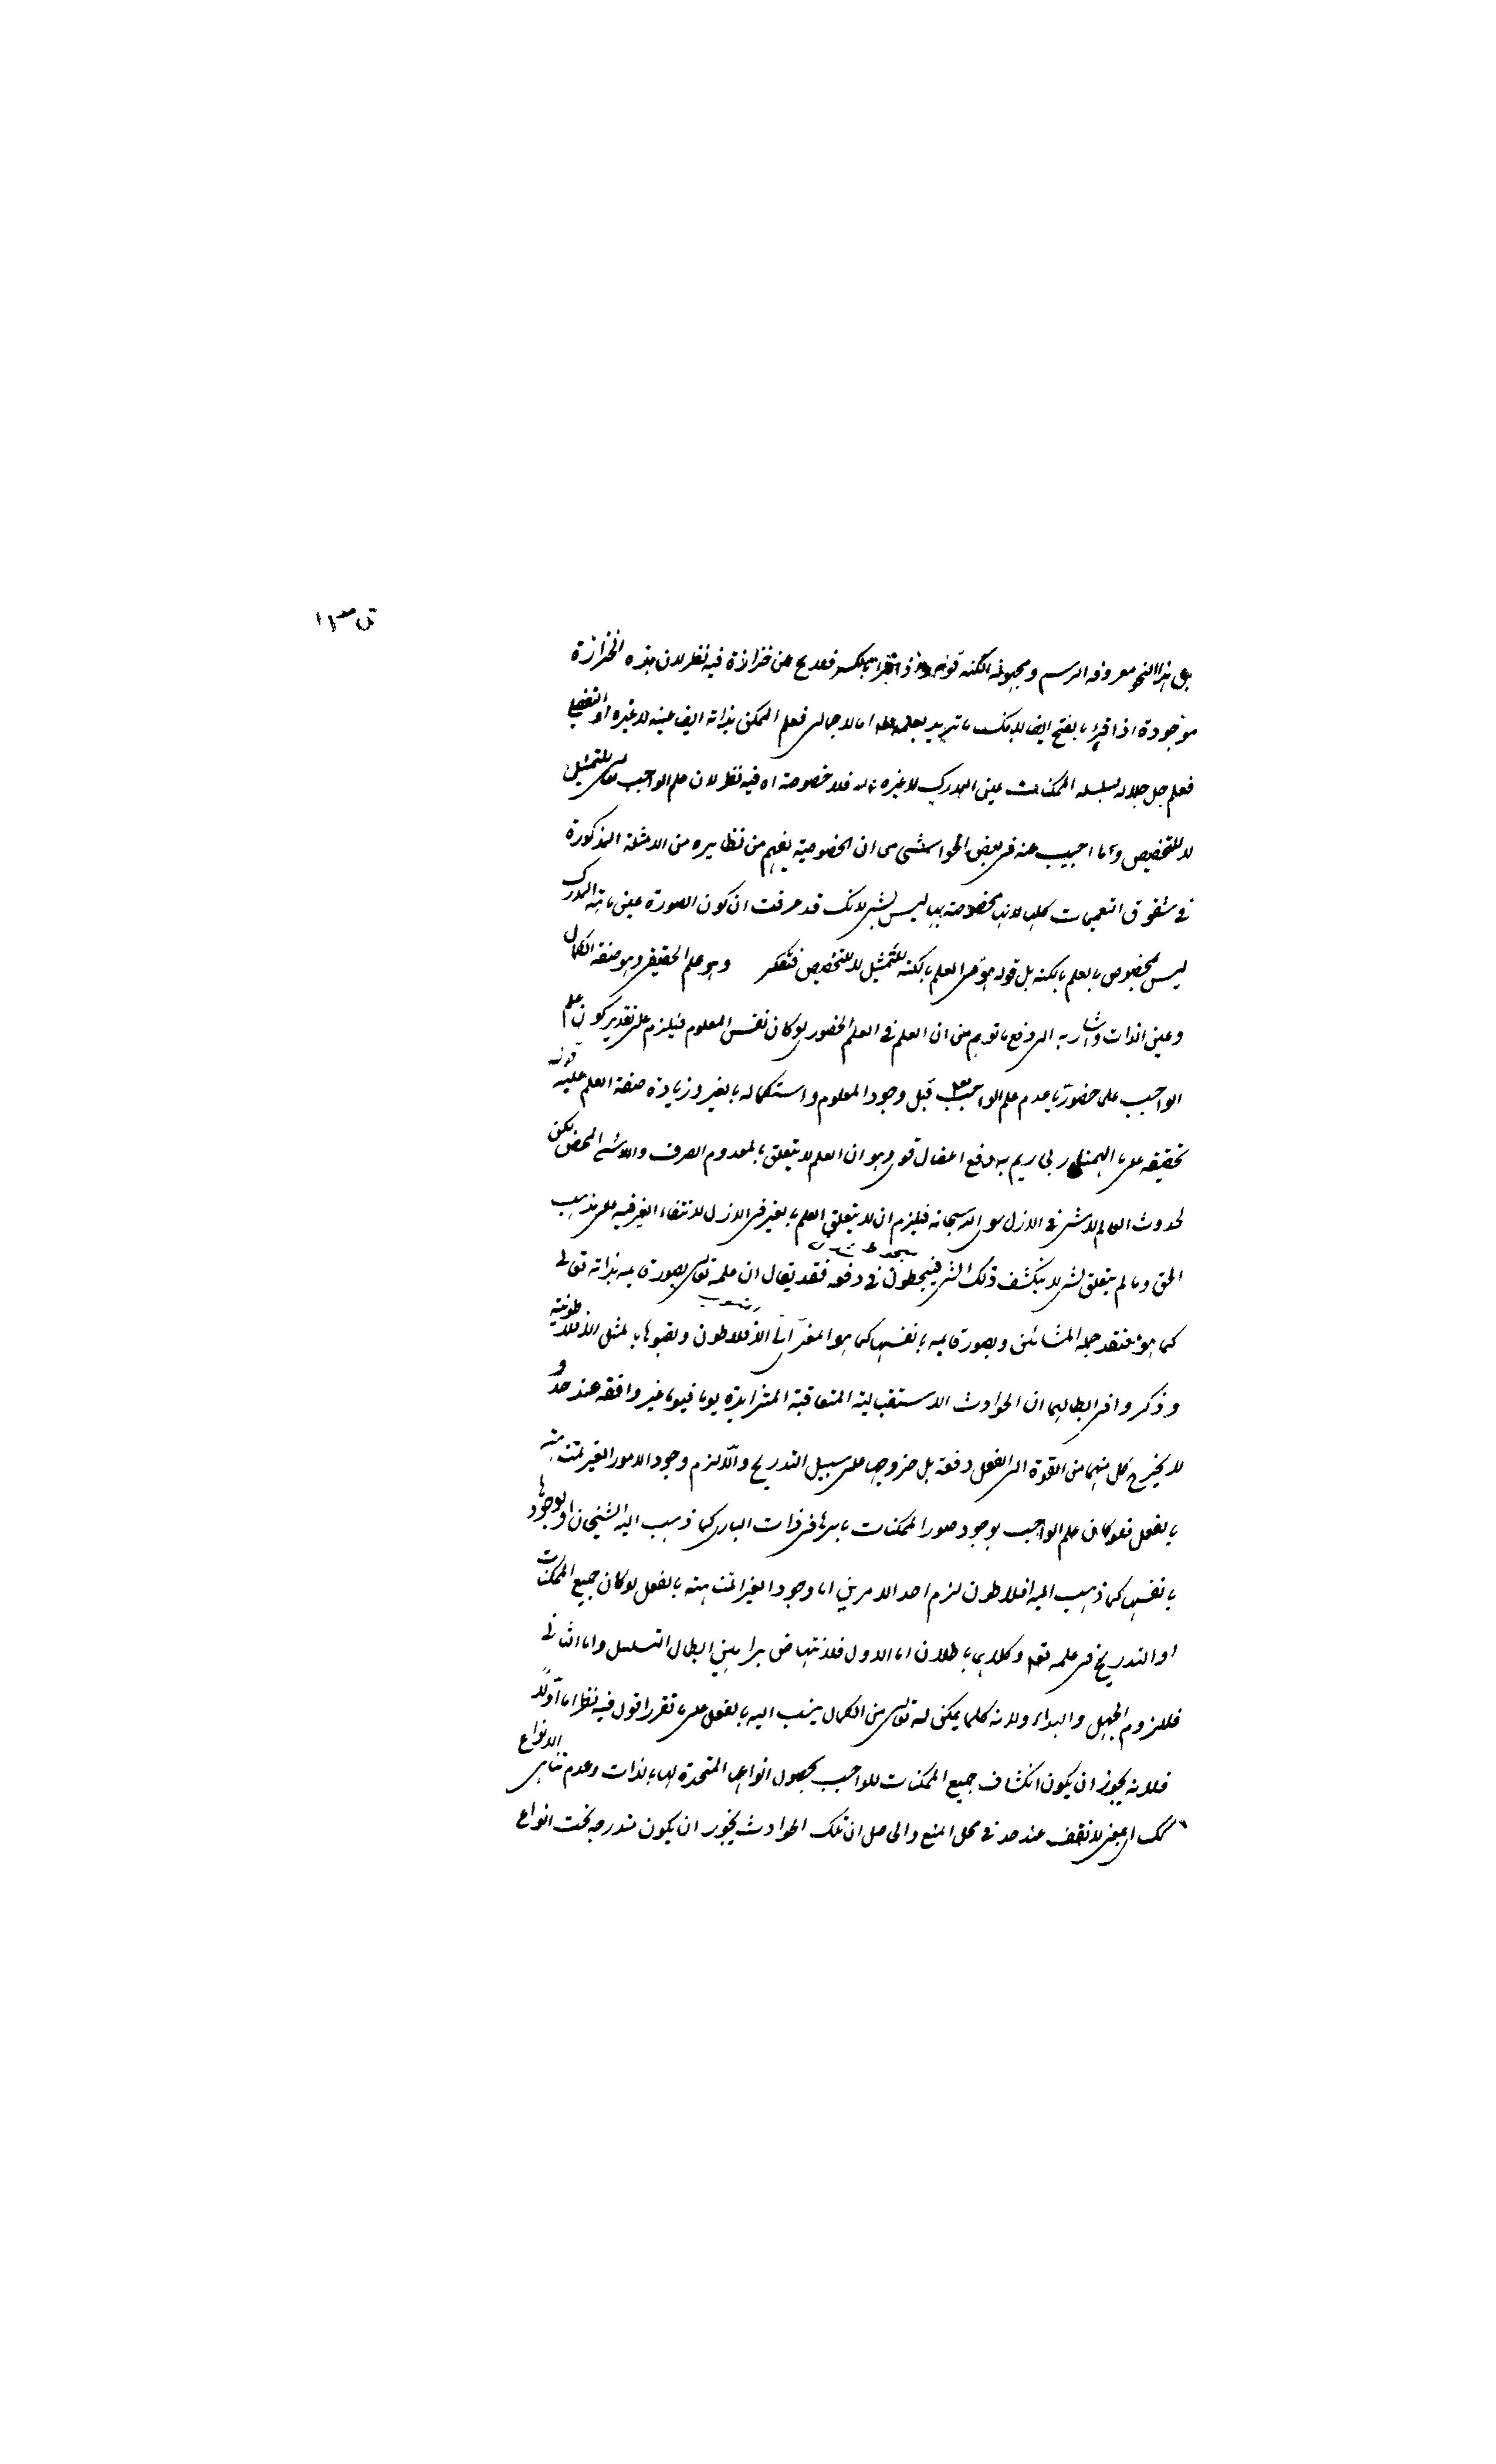 هذا النحو معروفه الرسم ومجهولة الكنه قوله اذا قرأ بالكسر فعدع عن خزازة فيه نظر لان هذه الخزازة
موجودة اذا قرئ بالفتح ايضا لانك ما تريد بعلمه اما لاجمالى فعلم الممكن بذاته ايضا عينه لا غيره او التفصيلى
فعلم جل جلاله لسلسلة الممكنات عين المدرك لا غيره فلا خصوصة اه فيه نظر لان علم الواجب تعالى للتمثيل
لا للتخصيص واما اجيب عنه فى بعض الحواشى من ان الخصوصية يفهم من نظايره من الامثلة المذكورة
فى شقوق التعميمات كلها لانها مخصوصة بها ليس بشئ لانك قد عرفت ان كون الصورة عين ماهية المدرك
ليس بمخصوص بالعلم بالكنه بل قوله هو فى العلم بالكنه للتمثيل لا للتخصيص فتفكر وهو علم الحقيقى وهو صفة الكمال
وعين الذات واشار به الى دفع ما توهم من ان العلم فى العلم الحضورى لو كان نفس المعلوم فيلزم على تقدير كون علم
الواجب على حضوريا عدم علم الواجب تعالى قبل وجود المعلوم واستكماله بالغير وزيادة صفة العلم عليه قوله
تحقيقه على ما الهمنى ربى ريم به دفع اعضال قوى وهو ان العلم لا يتعلق بالمعدوم الصرف واللاشئ المحض لكن
لحدوث العالم لا شئ فى الازل سوى الله سبحانه فيلزم ان لا يتعلق العلم بالغير فى الازل لانتفاء الغير فيه على مذهب
الحق وما لم يتعلق بشئ لا ينكشف ذلك الشئ فيخبطون فى دفعه فقد يقال ان علمه تعالى بصور قايمه بذاته تعالى
كما هو معتقد جملة المشائين وبصور قايمه بانفسها كما هو المعزى الى الافلاطون ولقبوها بالمثل الافلاطونية
وذكروا فى ابطالهما ان الحوادث الاستقبالية المتعاقبة المتزايدة يوما فيوما غير واقفة عند حد و
لا يخرج كل منها من القوة الى الفعل دفعة بل خروجها على سبيل التدريج والا لزم وجود الامور الغير المتناهية
بالفعل فلو كان علم الواجب بوجود صور الممكنات باسرها فى ذات البارى كما ذهب اليه الشيخان او بوجودها
بانفسها كما ذهب اليه افلاطون لزم احد الامرين اما وجود الغير المتناهية بالفعل لو كان جميع الممكنات
او التدريج فى علمه تعالى وكلاهما باطلان اما الاول فلانتهاض براهين ابطال التسلسل واما الثانى
فللزوم الجهل والبداء ولانه كلما يمكن له تعالى من الكمال ينسب اليه بالفعل على ما تقرر اقول فيه نظر اما اولا
فلانه يجوز ان يكون انكشاف جميع الممكنات للواجب بحصول انواعها المتحدة لها بالذات وعدم تناهى الانواع
كك اى بمعنى لا تقف عند حد فى محل المنع والحاصل ان تلك الحوادث يجوز ان يكون مندرجة تحت انواع